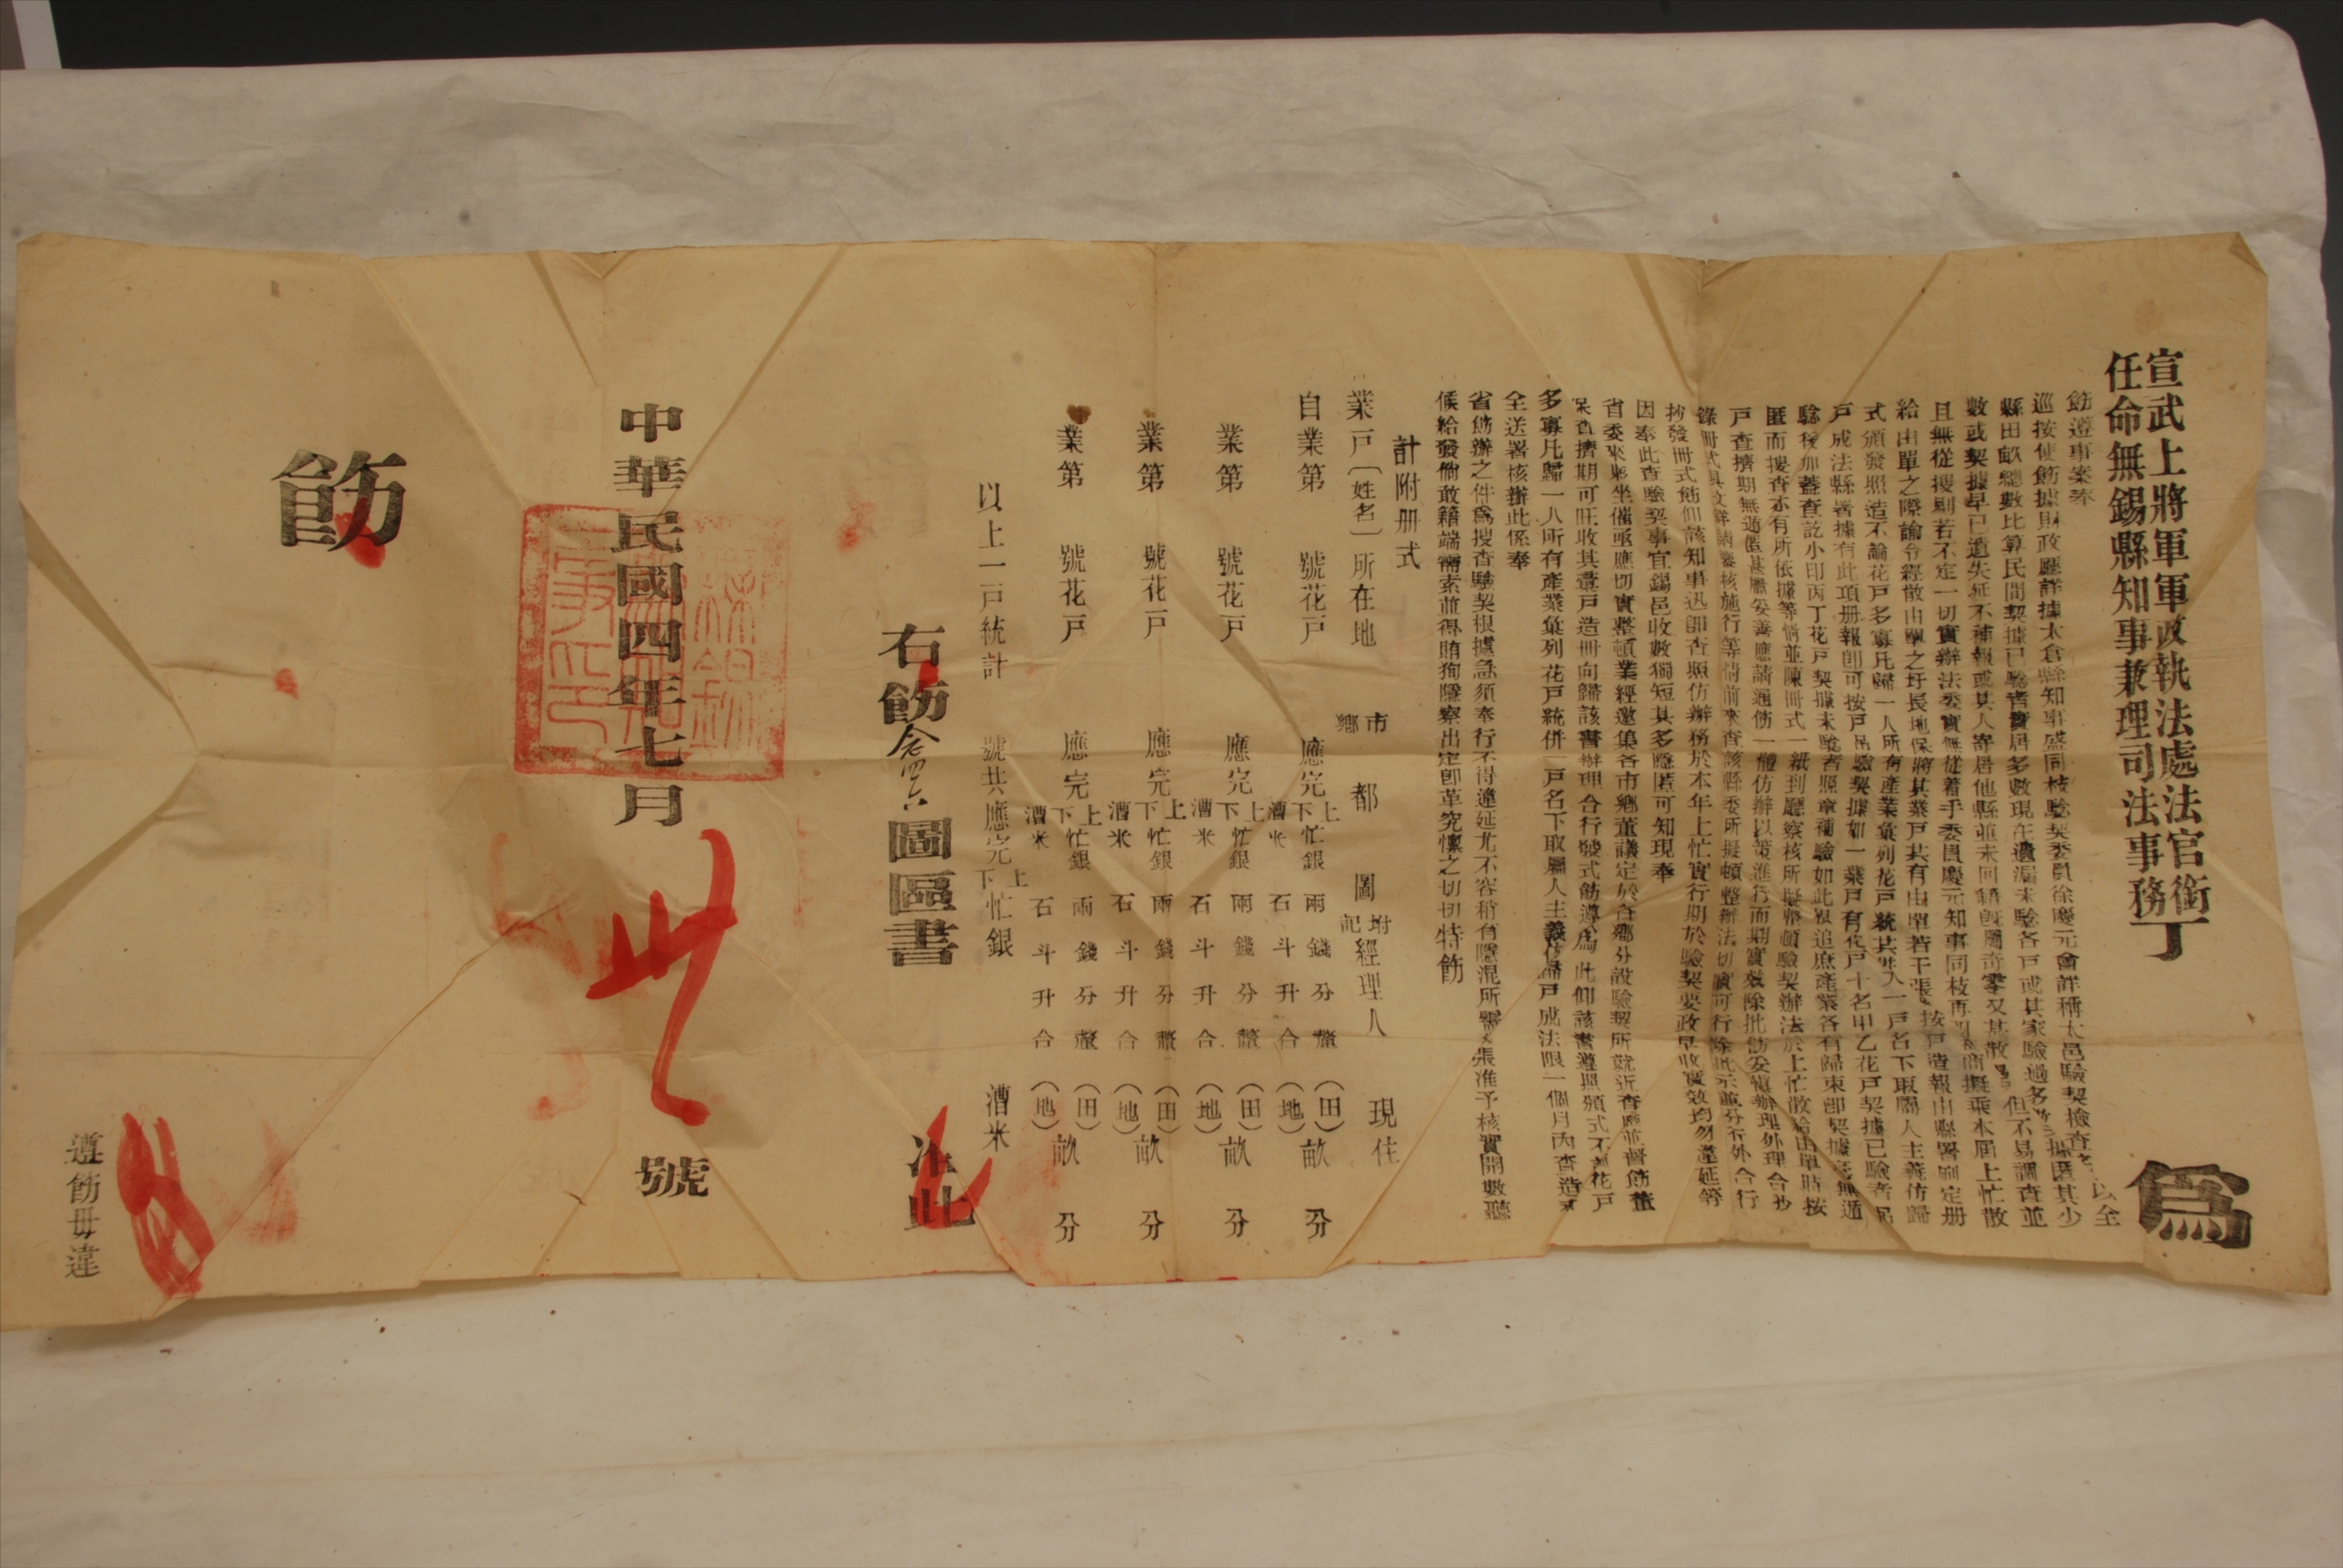 宣武上將軍軍政執法處法官銜丁
任命無錫縣知事兼理司法事務
爲
飭遵事案奉
巡按使飭據財政廳詳據太倉縣知事盛同枝驗契委員徐慶元會詳稱太邑驗契檢查
縣田畝總數比算民間契據已驗者實居多數現在遺漏未驗各戶或其家驗過多數
數或契據早已遺失延不補報或其人寄居他縣並未回籍旣屬奇零又甚散 但不易調查並
且無從搜剔若不定一切實辦法委實無從着手委員慶元知事同枝再 商擬乘本屆上忙散
給由單之際諭令經散由單之圩長地保將某業戶共有由單若干張按戶造報由縣署刷定册
式頒發照造不論花戶多寡凡歸一人所有產業彙列花戶統其共入一戶名下取閤人主義仿歸
戶成法縣署據有此項册報卽可按戶吊驗契據如一業戶有花戶十名甲乙花戶契據已驗者吊
驗後加蓋查訖小印丙丁花戶契據未驗者照章補驗如此跟追庶產業各有歸束卽契據 無遁
匿而搜查亦有所依據等情並陳册式一紙到廳察核所擬整頓驗契辦法於上忙散給由單時按
戶查擠期無遁匿甚屬妥善應請通飭一體仿辦以策進行而期實效除批飭妥愼辦理外理合抄
錄册式具文詳請鑒核施行等情前來查該縣委所擬頓整辦法切實可行除批示並分行外合行
抄發册式飭仰該知事迅卽查照仿辦務於本年上忙實行期於驗契要政早收實效均勿違延等
因奉此查驗契事宜錫邑收數獨短其多隱匿可知現奉
省委來縣坐催亟應切實整頓業經邀集各市鄉董議定於合鄉分設驗契所就近查驗並督飭董
保查擠期可旺收其臺戶造册向歸該書辦理合行發式飭遵爲此仰該書遵照頒式不論花戶
多寡凡歸一人所有產業彙列花戶統併一戶名下取屬人主義仿歸戶成法限一個月內查造
全送署核辦此係奉
省飭辦之件爲搜查驗契根據急須奉行不得違延尤不容稍有隱混所需 張准予核實開數聽
候給發倘敢藉端需索並得賄狥隱察出定卽革究懍之切切特飭
計附册式
業戶〔姓名〕所在地 市鄉 都 圖 附記 經理人 現住
自業第 號花戶 應完 上下忙銀 兩 錢 分 釐 漕米 石 斗 升 合 (田)(地) 畝 分
業第 號花戶 應完 上下忙銀 兩 錢 分 釐 漕米 石 斗 升 合 (田)(地) 畝 分
業第 號花戶 應完 上下忙銀 兩 錢 分 釐 漕米 石 斗 升 合 (田)(地) 畝 分
業第 號花戶 應完 上下忙銀 兩 錢 分 釐 漕米 石 斗 升 合 (田)(地) 畝 分
以上一戶統計 號共應完 上下忙銀 漕米
右飭念四六圖區書 准此
中華民國四年七月 號
飭
遵飭毋違